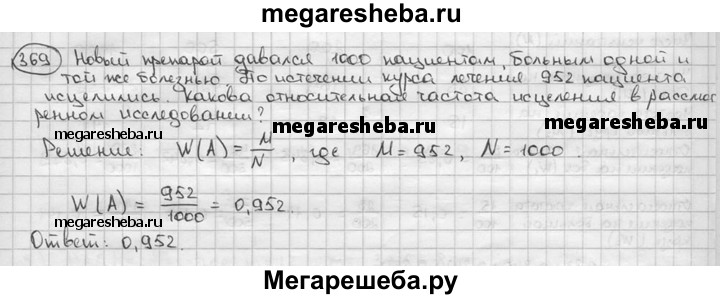 megaresheba.ru
369 Новый препарат давался 1000 пациентам, больным одной и
той же болезнью. По истечении курса лечения 952 пациента
исцелились. Какова относительная частота исцеления в рассмот
ренном исследовании?
megaresheba.ru megaresheba.ru
Решение: W(A) = M/N, где M = 952, N = 1000.
W(A) = 952/1000 = 0,952.
megaresheba.ru megaresheba.ru
Ответ: 0,952.
Мегарешеба.ру